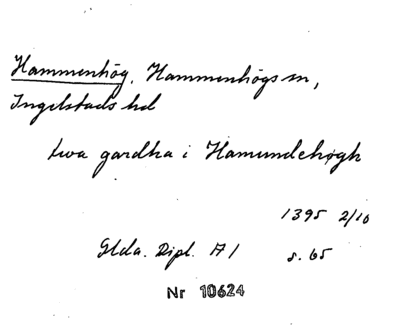 Hammenhög, Hammenhögs sn,
Ingelstads hd
twa gardha i Hamundehøgh
1395 2/10
Glda. Dipl. A 1 s. 65
Nr 10624